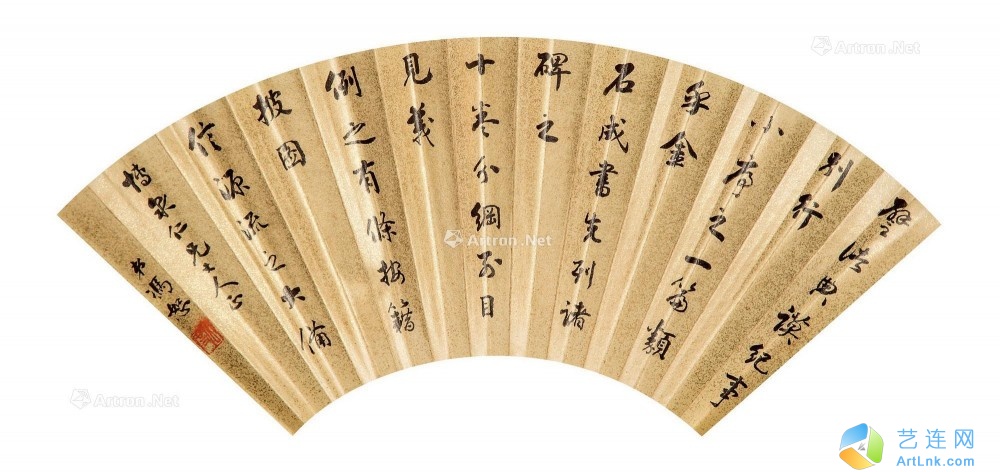 典謨紀事
別行
小序之一篇類
乎金
石成書先列諸
碑之
十卷分綱列目
見義
例之有條按籍
披圖
信源流之大備
博泉仁兄大人正
弟馮恕
Artron.Net
Artron.Net
Artron.Net
Artron.Net
Artron.Net
艺连网
ArtLnk.com